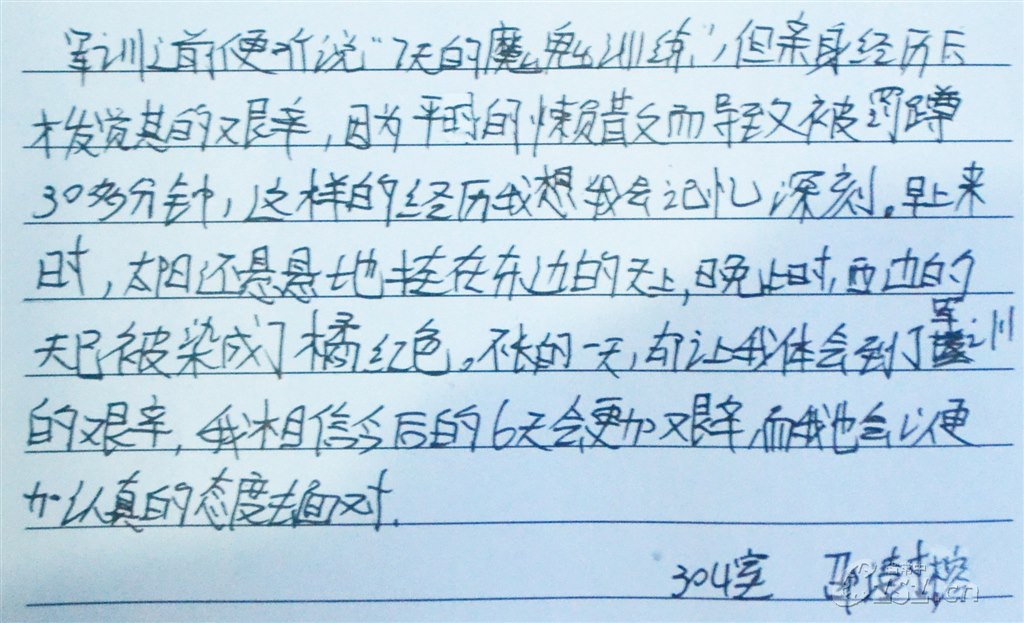 军训之前便听说“7天的魔鬼训练”,但亲身经历后
才发觉其的艰辛,因为平时的懒散而导致被罚蹲
30多分钟,这样的经历我想我会记忆深刻。早上来
时,太阳还悬悬地挂在东边的天上,晚上时,西边的
天已被染成了橘红色。不长的一天,却让我体会到了军训
的艰辛,我相信今后的6天会更加艰辛,而我也会以更
加认真的态度去面对.
304室